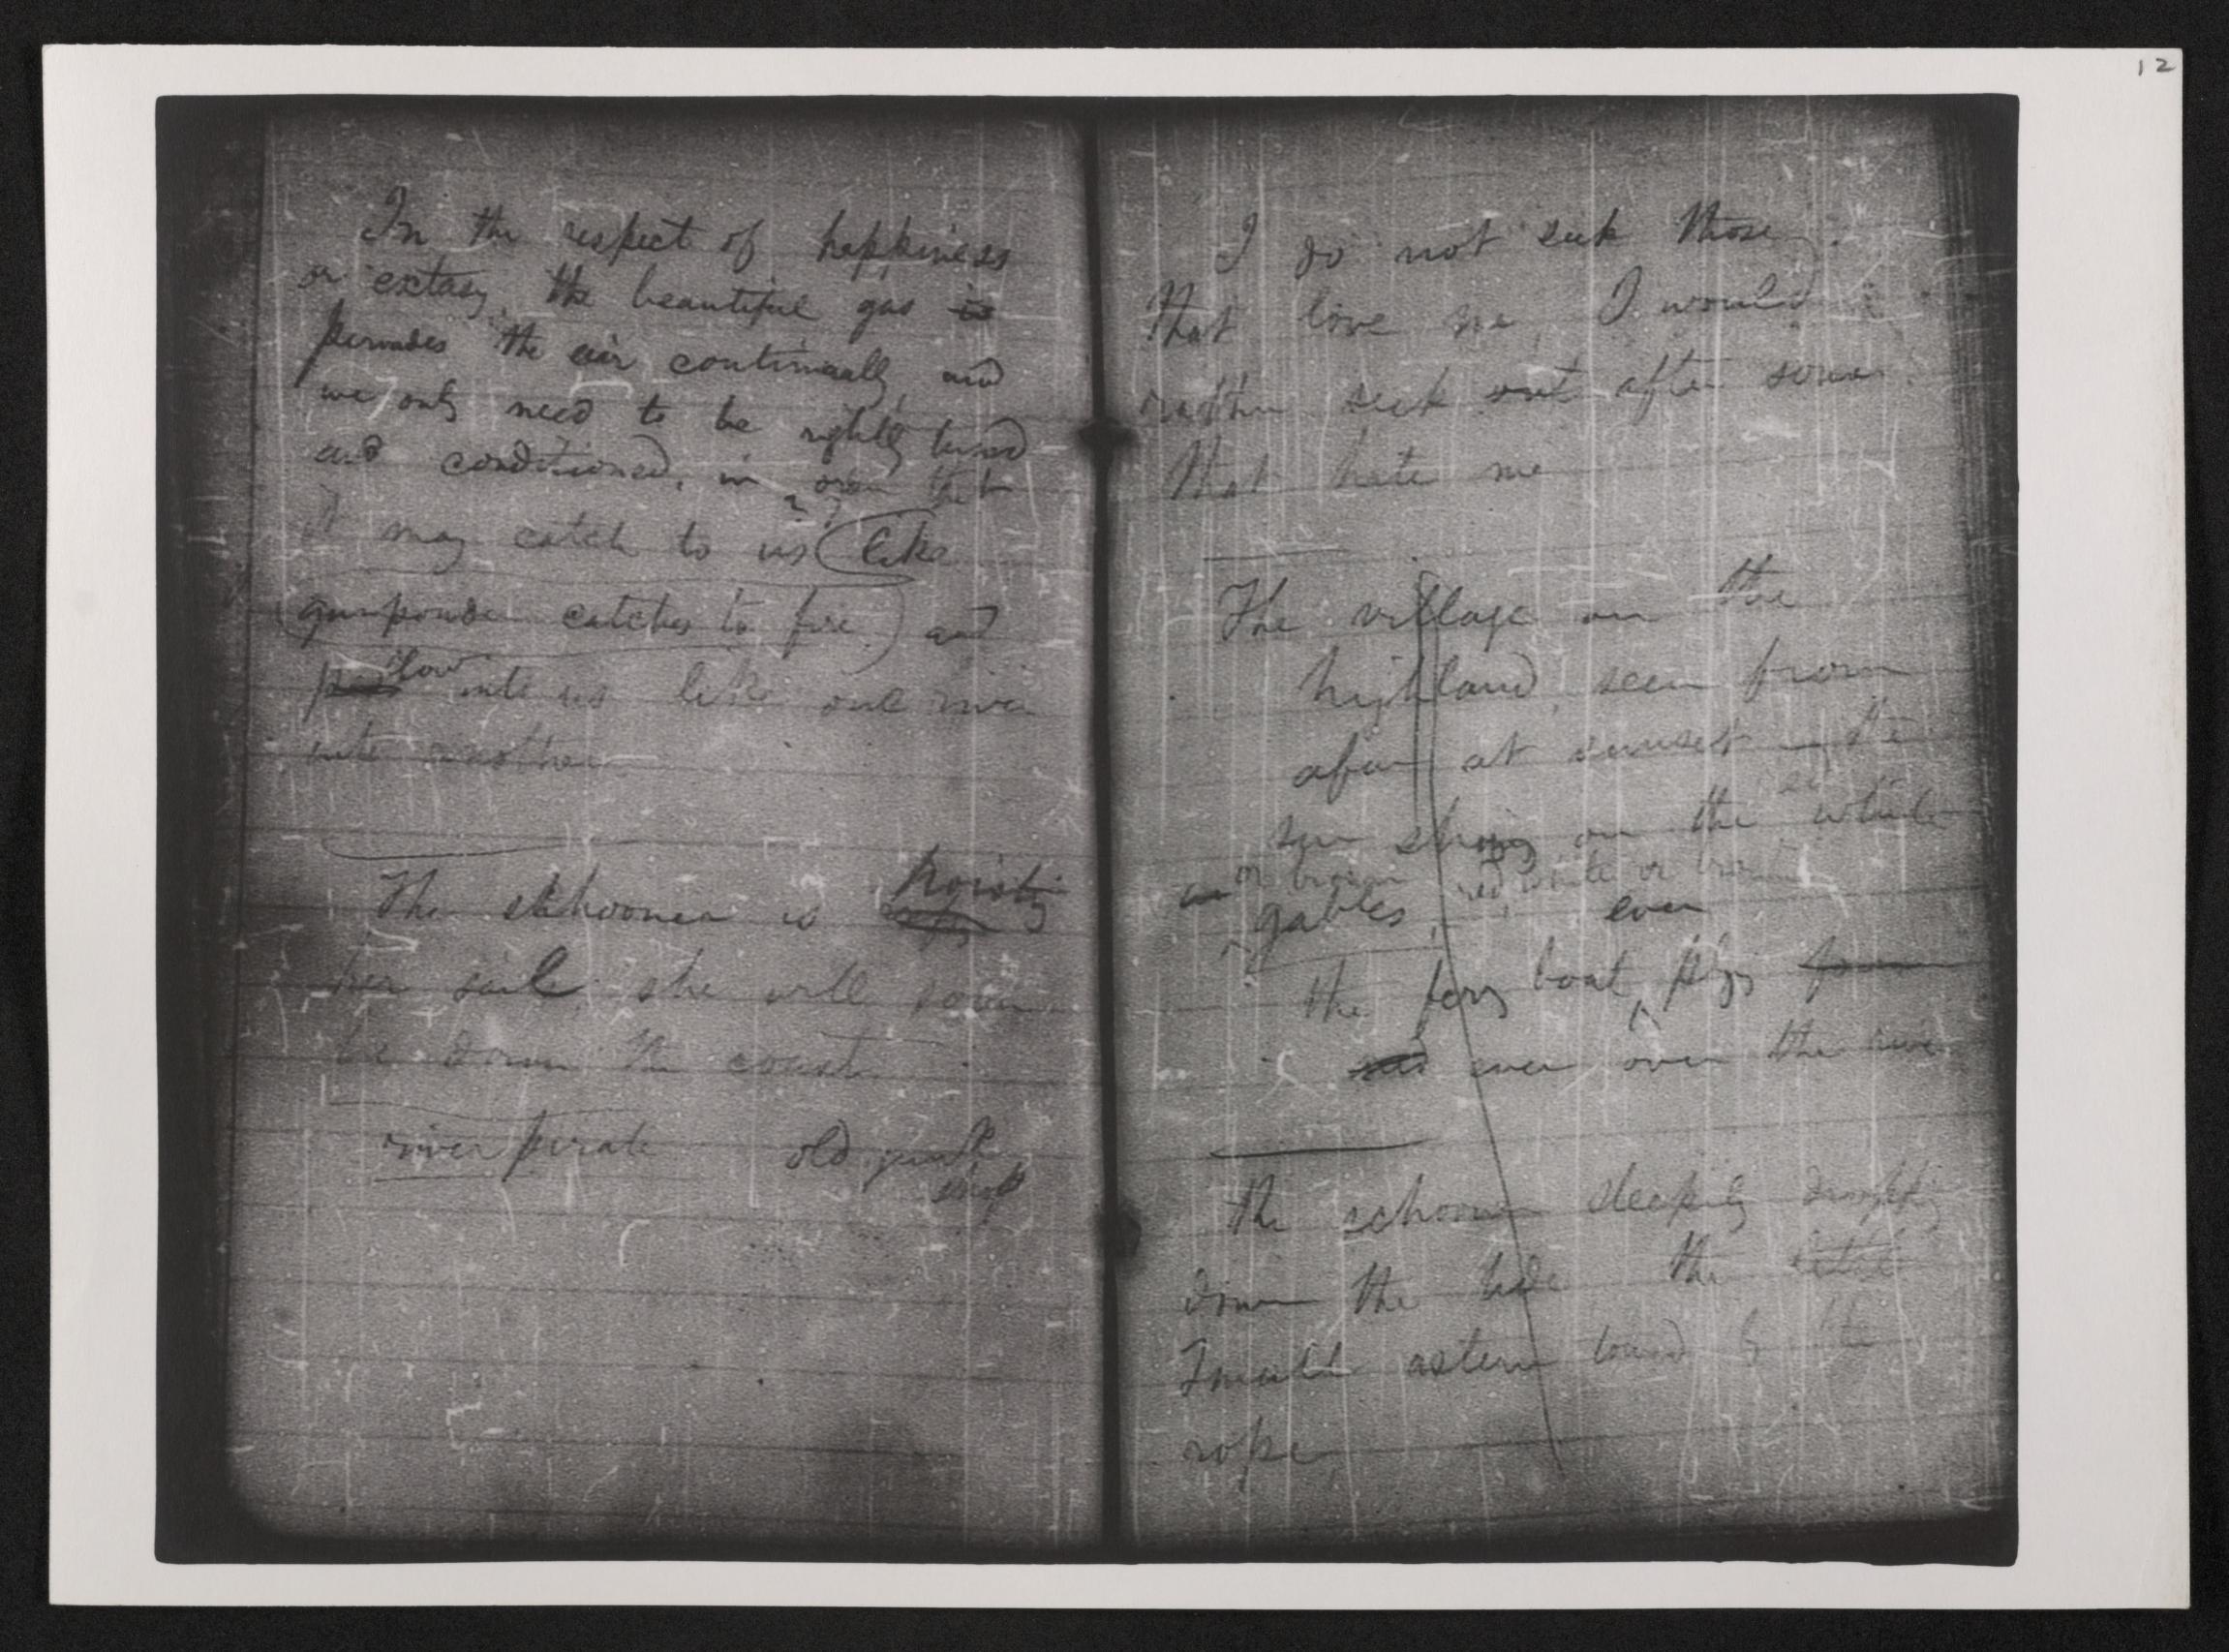 12
In the respect of happiness
or extasy, the beautiful gas is
pervades the air continually, and
we only need to be rightly tuned
and conditioned, in order that
it may catch to us (like
gunpowder catches to fire) and
flow
into us like one river
into another
The schooner is hoisting
her sail, she will soon
be down the coast
river pirate old junk
shop
I do not seek those
that love me, I would
rather seek out after some
that hate me
The village on the
highland, seen from
afar at sunset, the
sun shining on the white
or brown red white or brown
gables,
even
the ferry boat, plying
ever over the river
The schooner sleepily dropping
down the tide the little
astern towed by the
rope